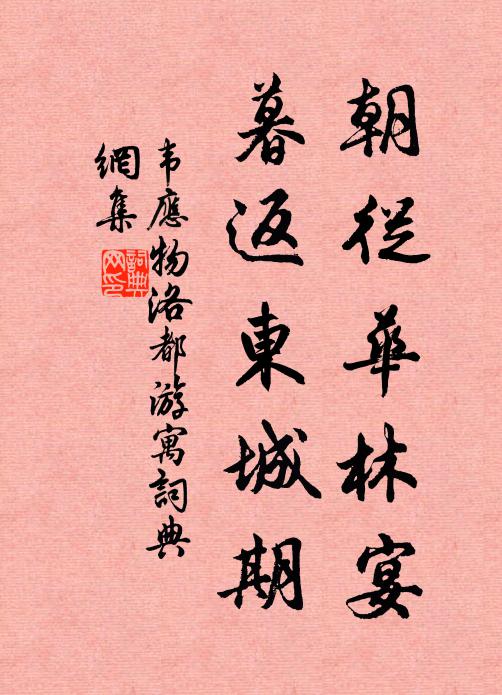 朝從華林宴
暮返東城期
韦應物洛都游寓詞典
網集
詞典
网印